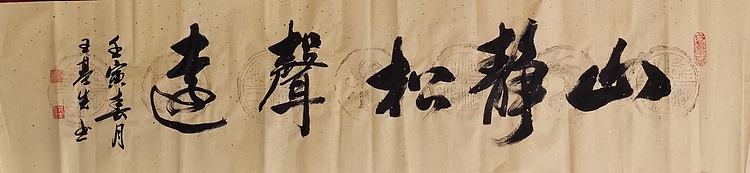 山静松聲遠
壬寅春月
王基生书